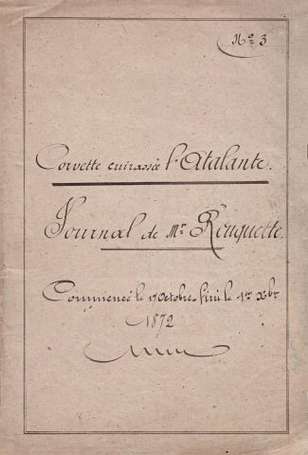 No 3
Corvette cuirassée l'Atalante.
Journal de Mr Rouquette.
Commencé le 17 Octobre fini le 1er Xbr
1872